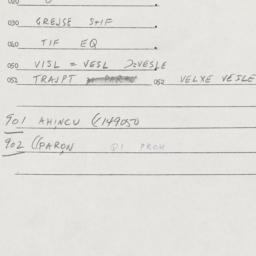 030 GREJSE STIF
040 TIF EQ
050 VISL = VESL J=VESLE
052 TRAJPT 052 VELXE VESLE
901 AHINCU (C149050
902 ((PARON DI PROH